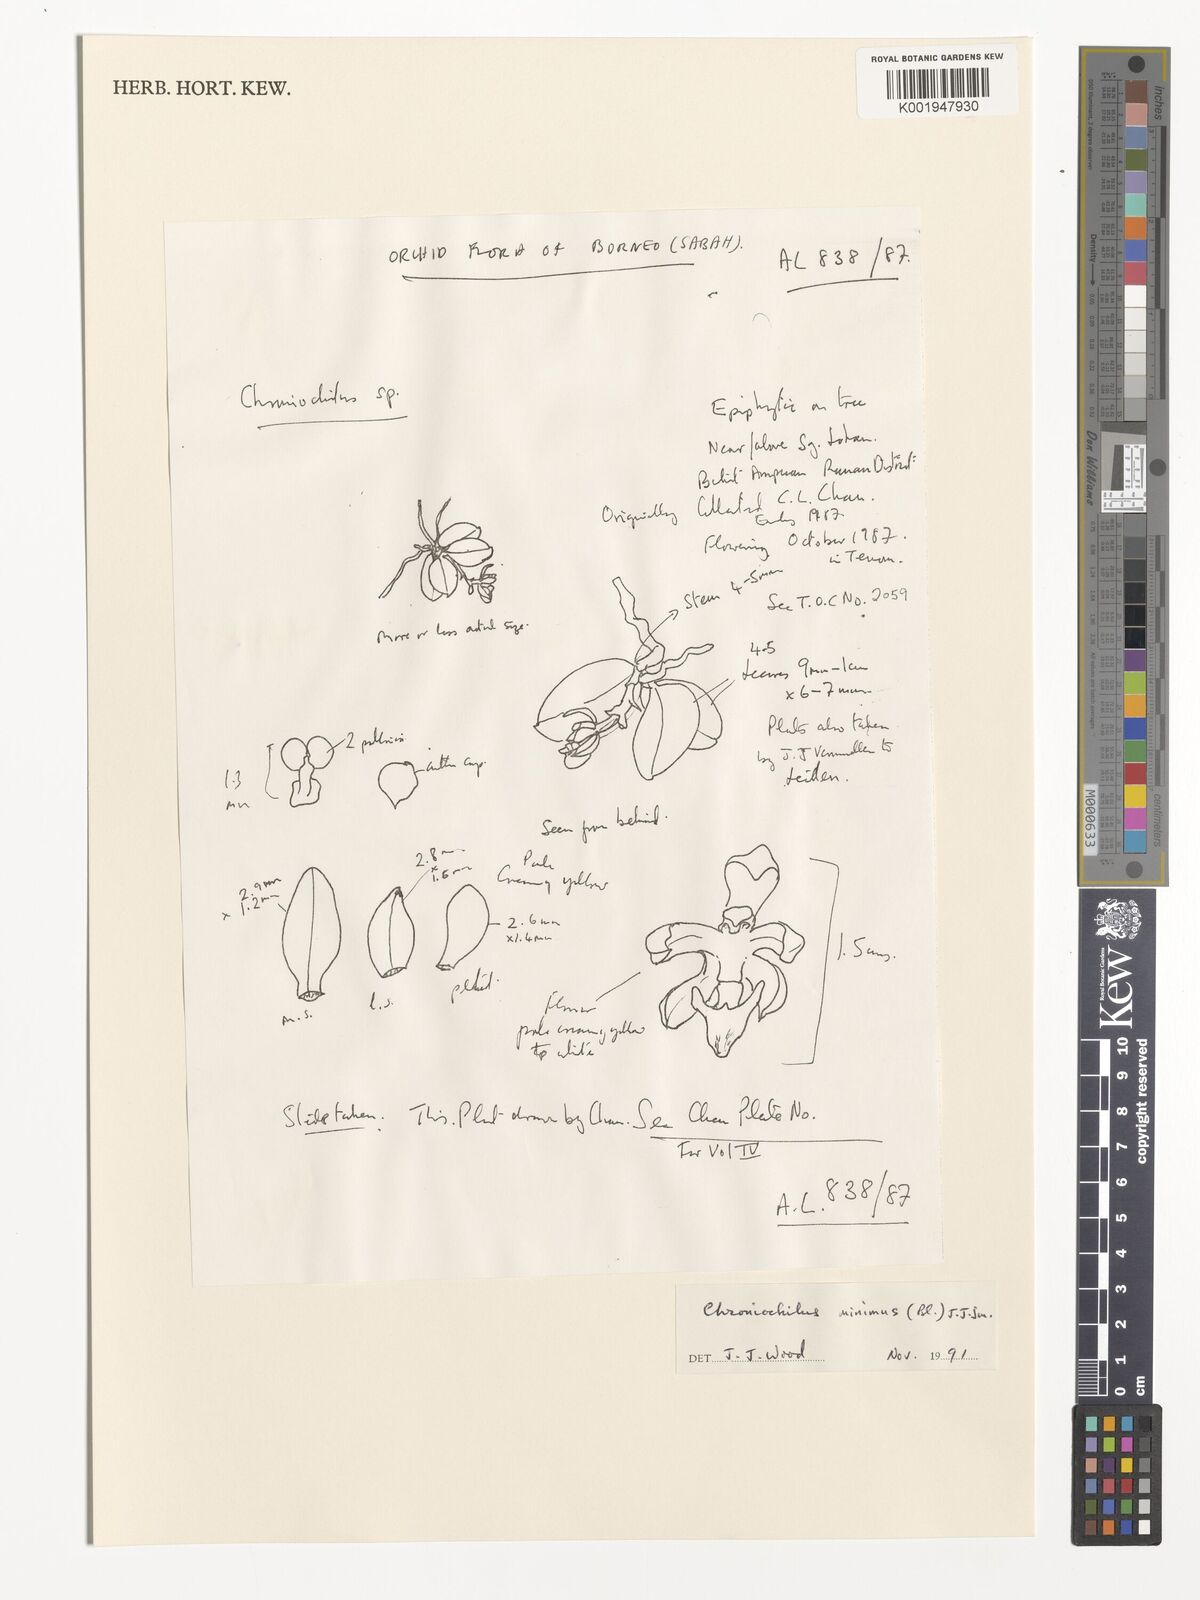 HERB. HORT. KEW.
ROYAL BOTANIC GARDENS KEW
K001947930
ORCHID FLORA OF BORNEO (SABAH).
AL 838/87.
Chroniochilus sp.
Epiphytic on tree
Near/above Sg. Lohan.
Bukit Ampuan Ranau District
Originally Collected C.L. Chan.
Early 1987
Flowering October 1987.
in Tenom.
See T.O.C No. 2059
More or less actual size.
Stem 4-5mm
4.5
Leaves 9mm-1cm
x 6-7mm
Plants also taken
by J.J Vermeulen to
Leiden.
2 pollinia
anther cap.
1.3
mm
Seen from behind.
2.9mm
x 1.2mm
2.8mm
x 1.6mm
Pale
Creamy yellow
2.6mm
x1.4mm
m.s.
l.s.
petal.
Flower
pale creamy yellow
to white
1.5cms.
Slides taken. This Plant drawn by Chan. See Chan Plate No.
For Vol IV
A.L. 838/87
Chroniochilus minimus (Bl.) J.J.Sm.
DET J. J. Wood Nov. 1991
inches
centimetres
Density
Don Williams
M000633
Royal Botanic Gardens
Kew
copyright reserved
0 1 2 3 4 5 6 7 8 9 10
cm